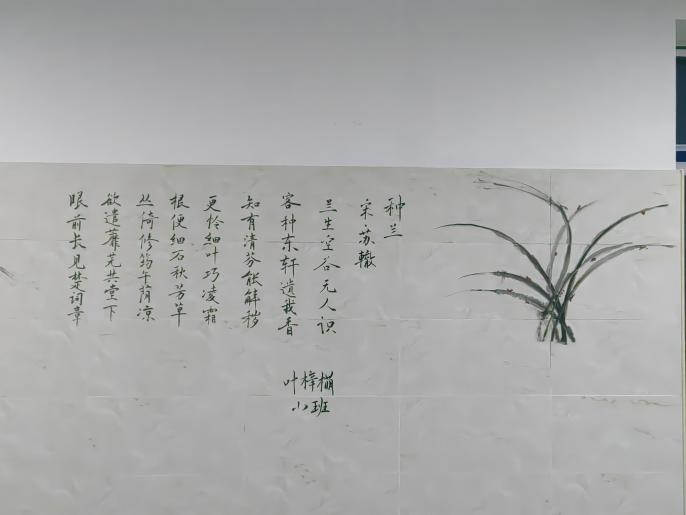 种兰
宋苏辙
兰生空谷无人识
客种东轩遗我香
知有清芬能解秽
更怜细叶巧凌霜
根便细石秋芳草
丛倚修筠午荫凉
欲遣蘼芜共堂下
眼前长见楚词章
叶梓榍
小班